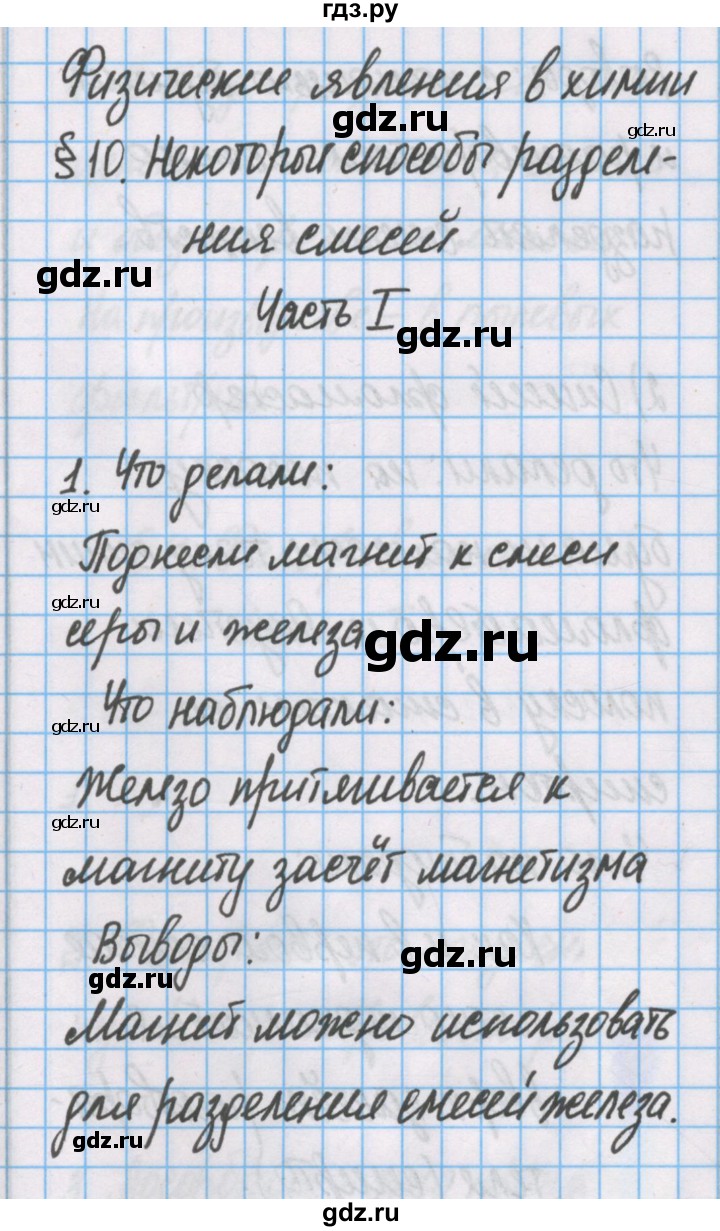 гдз.ру
Физические явления в химии
§10. Некоторые способы разделе-
ния смесей
Часть I
1. Что делали:
Поднесли магнит к смеси
серы и железа
Что наблюдали:
Железо притягивается к
магниту засчёт магнетизма
Выводы:
Магнит можно использовать
для разделения смесей железа.
gdz.ru
gdz.ru
gdz.ru
gdz.ru
gdz.ru
gdz.ru
gdz.ru
gdz.ru
gdz.ru
gdz.ru
gdz.ru
gdz.ru